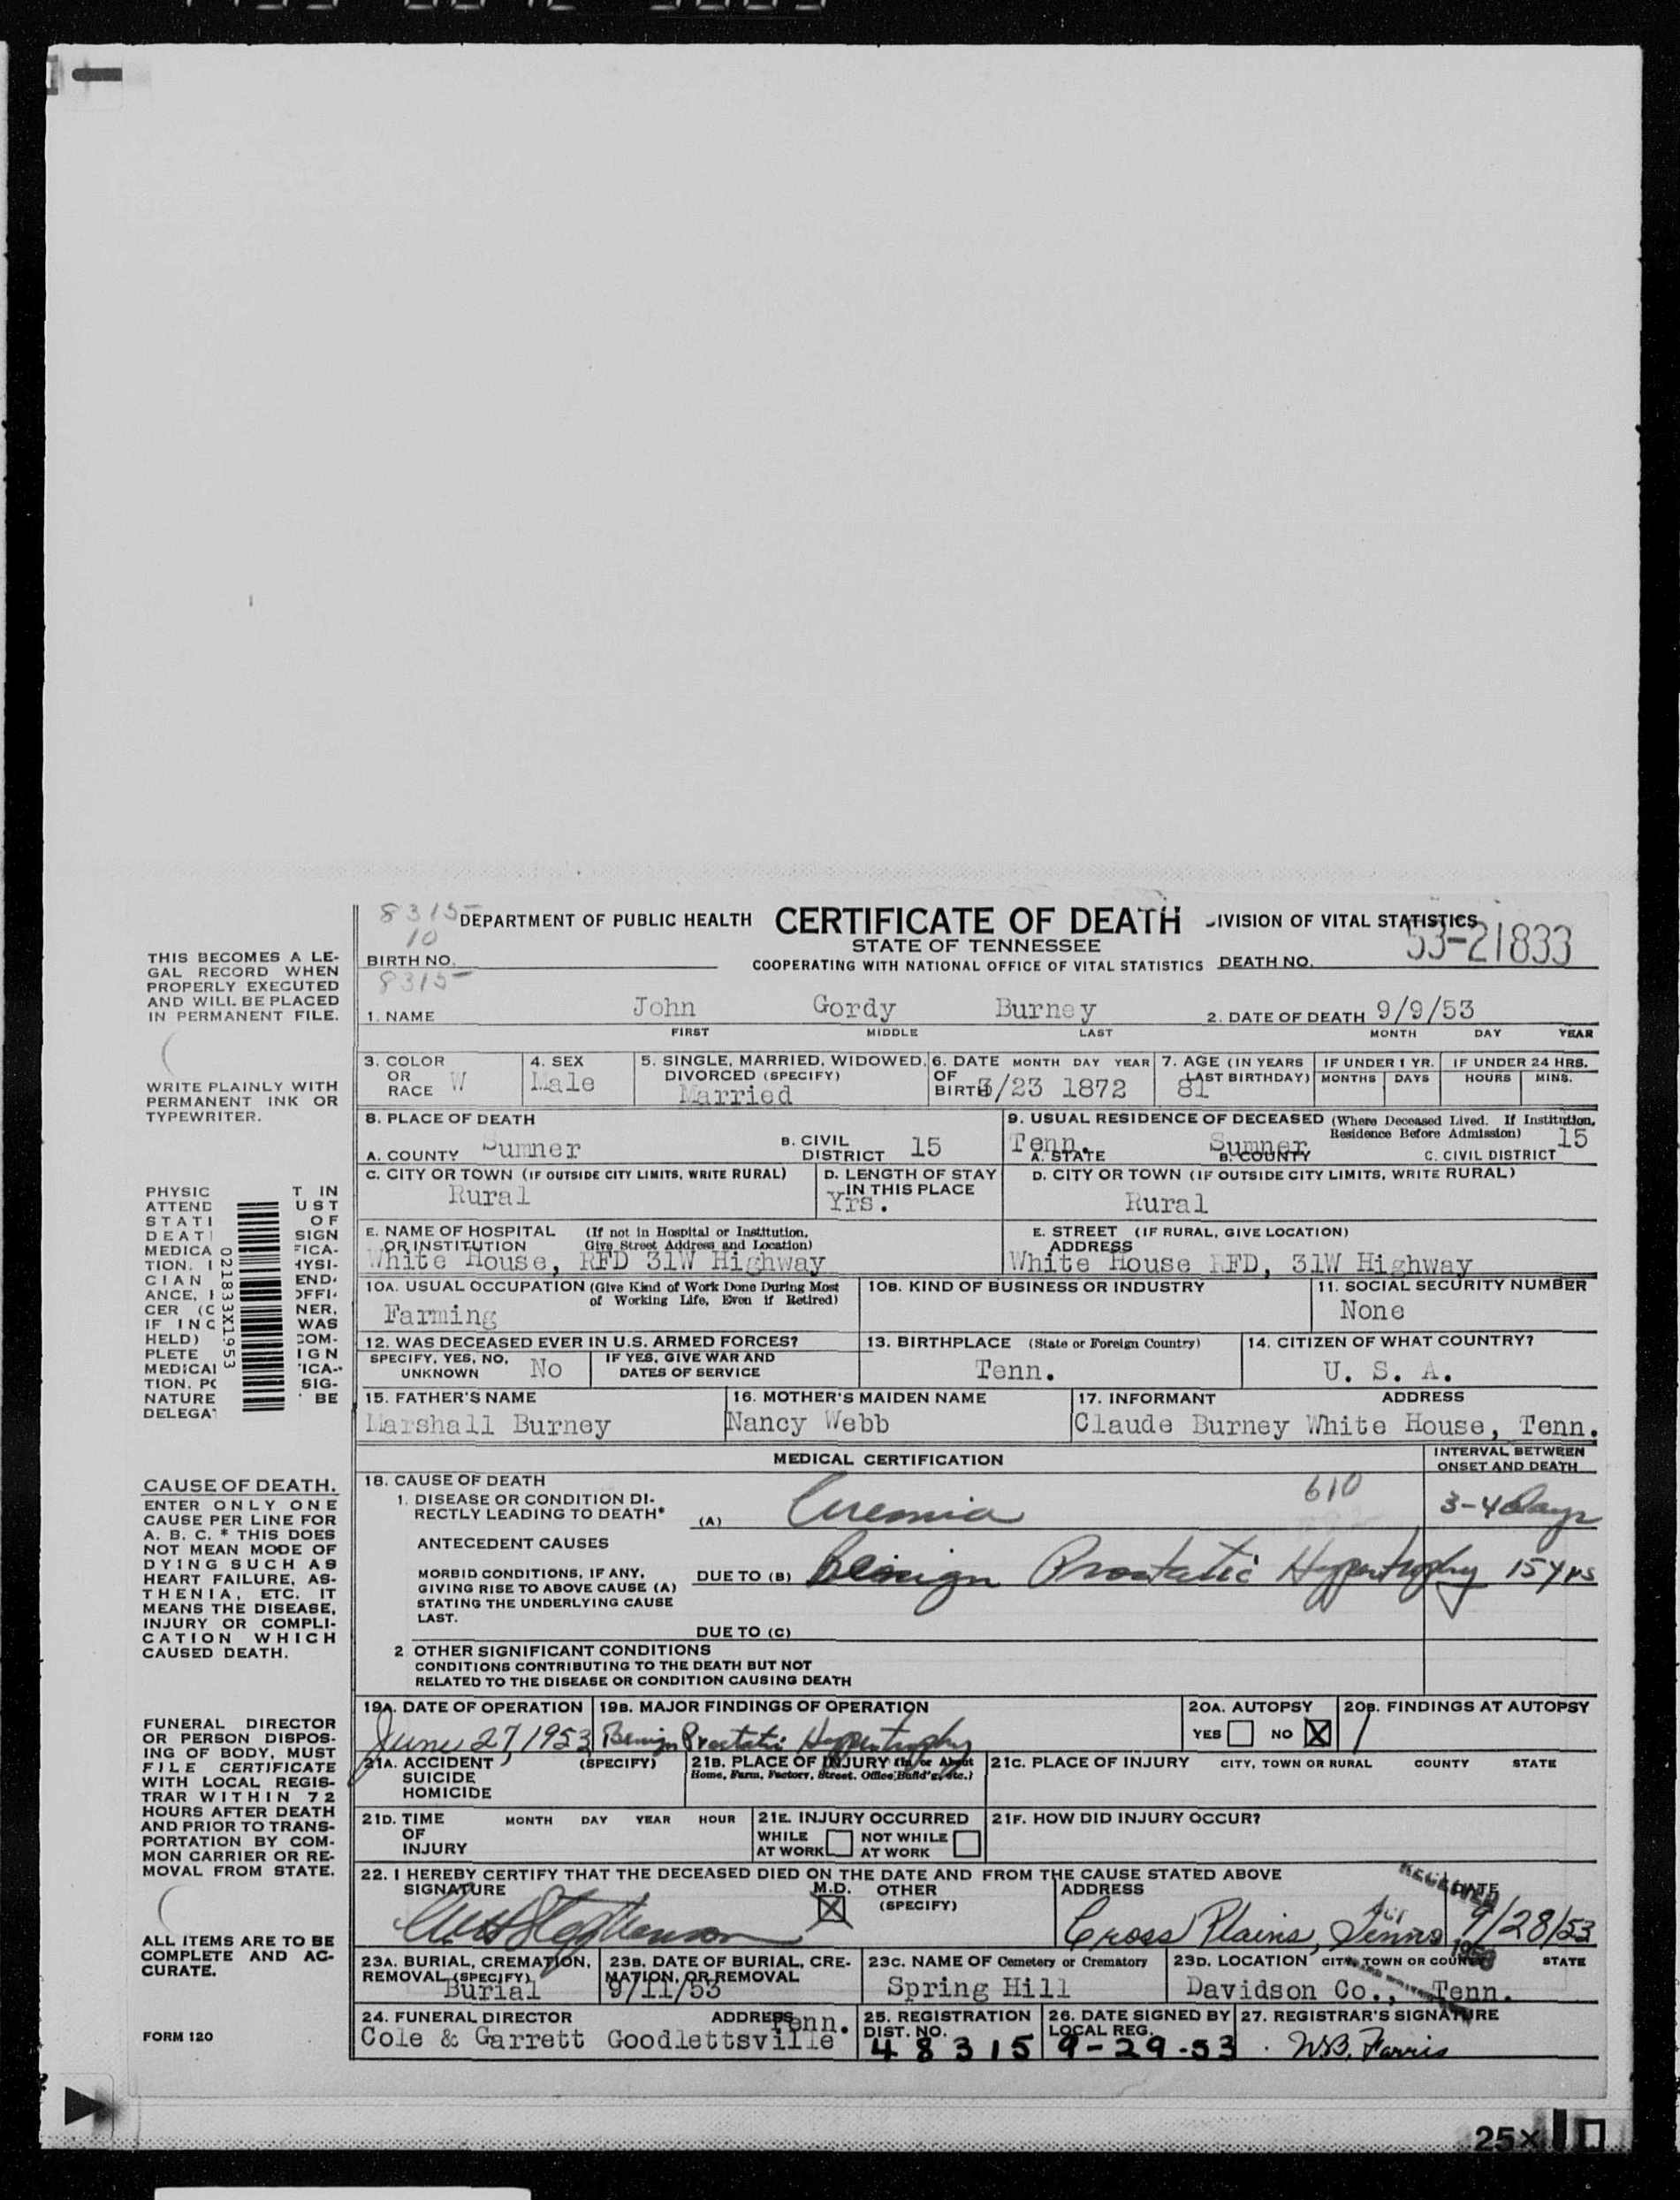 8315
10
DEPARTMENT OF PUBLIC HEALTH CERTIFICATE OF DEATH DIVISION OF VITAL STATISTICS
STATE OF TENNESSEE 53-21833
BIRTH NO. COOPERATING WITH NATIONAL OFFICE OF VITAL STATISTICS DEATH NO.
8315
1. NAME John Gordy Burney 2. DATE OF DEATH 9/9/53
FIRST MIDDLE LAST MONTH DAY YEAR
3. COLOR OR RACE W
4. SEX Male
5. SINGLE, MARRIED, WIDOWED, DIVORCED (SPECIFY) Married
6. DATE OF BIRTH MONTH DAY YEAR 3/23 1872
7. AGE (IN YEARS LAST BIRTHDAY) 81
IF UNDER 1 YR. MONTHS DAYS
IF UNDER 24 HRS. HOURS MINS.
8. PLACE OF DEATH
A. COUNTY Sumner B. CIVIL DISTRICT 15
9. USUAL RESIDENCE OF DECEASED (Where Deceased Lived. If Institution, Residence Before Admission)
Tenn. Sumner 15
A. STATE B. COUNTY C. CIVIL DISTRICT
C. CITY OR TOWN (IF OUTSIDE CITY LIMITS, WRITE RURAL)
Rural
D. LENGTH OF STAY IN THIS PLACE
Yrs.
D. CITY OR TOWN (IF OUTSIDE CITY LIMITS, WRITE RURAL)
Rural
E. NAME OF HOSPITAL OR INSTITUTION (If not in Hospital or Institution, Give Street Address and Location)
White House, RFD 31W Highway
E. STREET ADDRESS (IF RURAL, GIVE LOCATION)
White House RFD, 31W Highway
10A. USUAL OCCUPATION (Give Kind of Work Done During Most of Working Life, Even if Retired)
Farming
10B. KIND OF BUSINESS OR INDUSTRY
11. SOCIAL SECURITY NUMBER
None
12. WAS DECEASED EVER IN U.S. ARMED FORCES?
SPECIFY, YES, NO, UNKNOWN No
IF YES, GIVE WAR AND DATES OF SERVICE
13. BIRTHPLACE (State or Foreign Country)
Tenn.
14. CITIZEN OF WHAT COUNTRY?
U. S. A.
15. FATHER'S NAME
Marshall Burney
16. MOTHER'S MAIDEN NAME
Nancy Webb
17. INFORMANT ADDRESS
Claude Burney White House, Tenn.
MEDICAL CERTIFICATION
INTERVAL BETWEEN ONSET AND DEATH
18. CAUSE OF DEATH 610
1. DISEASE OR CONDITION DIRECTLY LEADING TO DEATH* (A) Uremia 3-4 Days
ANTECEDENT CAUSES
MORBID CONDITIONS, IF ANY, GIVING RISE TO ABOVE CAUSE (A) STATING THE UNDERLYING CAUSE LAST.
DUE TO (B) Benign Prostatic Hypertrophy 15 yrs
DUE TO (C)
2 OTHER SIGNIFICANT CONDITIONS
CONDITIONS CONTRIBUTING TO THE DEATH BUT NOT
RELATED TO THE DISEASE OR CONDITION CAUSING DEATH
19A. DATE OF OPERATION
June 27 1953
19B. MAJOR FINDINGS OF OPERATION
Benign Prostatic Hypertrophy
20A. AUTOPSY
YES NO X
20B. FINDINGS AT AUTOPSY
21A. ACCIDENT SUICIDE HOMICIDE (SPECIFY)
21B. PLACE OF INJURY (In or About Home, Farm, Factory, Street, Office Build'g, etc.)
21C. PLACE OF INJURY CITY, TOWN OR RURAL COUNTY STATE
21D. TIME OF INJURY MONTH DAY YEAR HOUR
21E. INJURY OCCURRED
WHILE AT WORK NOT WHILE AT WORK
21F. HOW DID INJURY OCCUR?
22. I HEREBY CERTIFY THAT THE DECEASED DIED ON THE DATE AND FROM THE CAUSE STATED ABOVE
SIGNATURE M.D. X OTHER (SPECIFY)
ADDRESS
Cross Plains, Tenn
DATE
9/28/53
RECEIVED
23A. BURIAL, CREMATION, REMOVAL (SPECIFY)
Burial
23B. DATE OF BURIAL, CREMATION, OR REMOVAL
9/11/53
23C. NAME OF Cemetery or Crematory
Spring Hill
23D. LOCATION CITY, TOWN OR COUNTY STATE
Davidson Co., Tenn.
24. FUNERAL DIRECTOR ADDRESS
Cole & Garrett Goodlettsville Tenn.
25. REGISTRATION DIST. NO.
48315
26. DATE SIGNED BY LOCAL REG.
9-29-53
27. REGISTRAR'S SIGNATURE
W.B. Farris
THIS BECOMES A LE-
GAL RECORD WHEN
PROPERLY EXECUTED
AND WILL BE PLACED
IN PERMANENT FILE.
WRITE PLAINLY WITH
PERMANENT INK OR
TYPEWRITER.
PHYSIC T IN
ATTEND UST
STATI OF
DEAT SIGN
MEDICA FICA-
TION. HYSI-
CIAN END-
ANCE, OFFI-
CER (C NER,
IF INC WAS
HELD) COM-
PLETE IGN
MEDICAL ICA-
TION. PO SIG-
NATURE BE
DELEGAT
021833X1953
CAUSE OF DEATH.
ENTER ONLY ONE
CAUSE PER LINE FOR
A. B. C. * THIS DOES
NOT MEAN MODE OF
DYING SUCH AS
HEART FAILURE, AS-
THENIA, ETC. IT
MEANS THE DISEASE,
INJURY OR COMPLI-
CATION WHICH
CAUSED DEATH.
FUNERAL DIRECTOR
OR PERSON DISPOS-
ING OF BODY, MUST
FILE CERTIFICATE
WITH LOCAL REGIS-
TRAR WITHIN 72
HOURS AFTER DEATH
AND PRIOR TO TRANS-
PORTATION BY COM-
MON CARRIER OR RE-
MOVAL FROM STATE.
ALL ITEMS ARE TO BE
COMPLETE AND AC-
CURATE.
FORM 120
25X